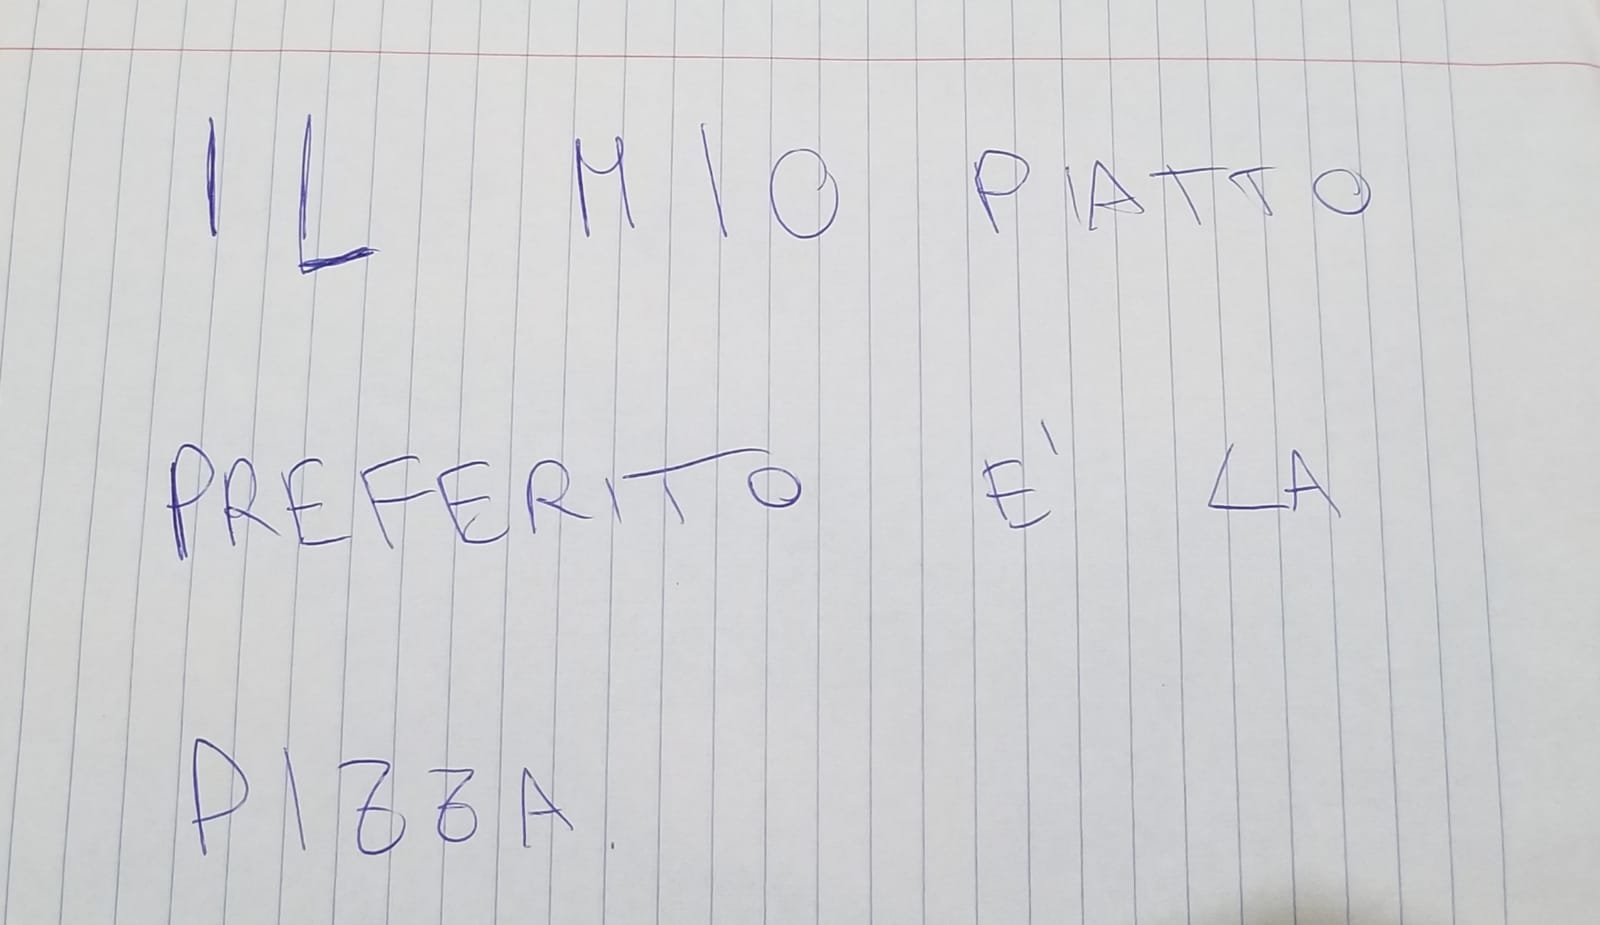 IL MIO PIATTO
PREFERITO E' LA
PIZZA.